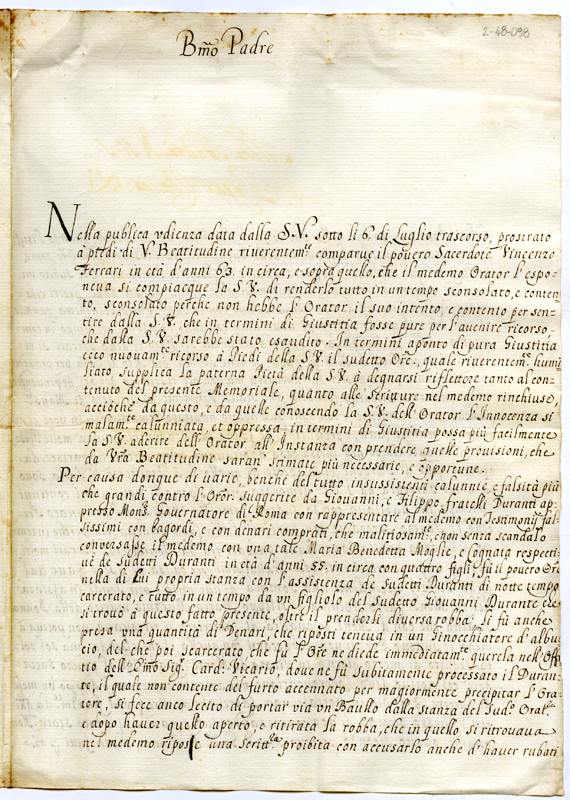 2-48-098
Bmo Padre
Nella publica vdienza data dalla S.V. sotto li 6 di Luglio trascorso, prostrato
à piedi di V. Beatitudine riuerentem.e comparue il pouero Sacerdote Vincenzo
Ferrari in età d'anni 63. in circa, e sopra quello, che il medemo Orator l'espo=
neua si compiacque la S.V. di renderlo tutto in un tempo sconsolato, e conten
to, sconsolato perche non hebbe l'Orator il suo intento, e contento per sen=
tire dalla S.V. che in termini di Giustitia fosse pure per l'auenire ricorso,
che dalla S.V. sarebbe stato esaudito. In termini aponto di pura Giustitia
ecco nuouam.e ricorso à Piedi della S.V. il sudetto Ore, quale riuerentem.e humi
liato supplica la paterna Pietà della S.V. à degnarsi riflettere tanto al con=
tenuto del presente Memoriale, quanto alle Scritture nel medemo rinchiuse,
acciòche da questo, e da quelle conoscendo la S.V. dell'Orator l'Innocenza si
malam.e calunniata, et oppressa, in termini di Giustitia possa più facilmente
la S.V. aderire dell'Orator all'Instanza con prendere quelle prouisioni, che
da Vra Beatitudine saran stimate più necessarie, e opportune.
Per causa donque di uarie, benche del tutto insussistenti calunnie e falsità più
che grandi contro l'Oror. suggerite da Giouanni, e Filippo fratelli Duranti ap=
presso Mons. Gouernatore di Roma con rappresentare al medemo con Testamonij fal
sissimi con bagordi, e con denari comprati, che malitiosam.e, e non senza scandalo
conuersasse il medemo con una tale Maria Benedetta Moglie, e Cognata respecti=
uè de Sudetti Duranti in età d'anni 55. in circa con quattro figli, fù il pouero Ore
nella di lui propria stanza con l'assistenza de Sudetti Duranti di notte tempo
carcerato, e tutto in un tempo da un figliolo del sudetto Giouanni Durante che
si trouò à questo fatto presente, oltre il prenderli diuersa robba, li fù anche
presa una quantità di Denari, che riposti teneua in un Ginocchiatore d'albu=
cio, del che poi scarcerato che fù l'Ore ne diede immediatam.e querela nell'Offi
tio dell'Emo Sig. Card: Vicario, doue ne fù subitamente processato il Duran=
te, il quale non contente del furto accennato per magiormente precipitar l'Ora=
tore, si fece anco lecito di portar via vn Baullo dalla stanza del sud.o Orat.e
e dopo hauer quello aperto, e ritirata la robba, che in quello si ritrouaua
nel medemo ripose una scritt.a proibita con accusarlo anche d'hauer rubati